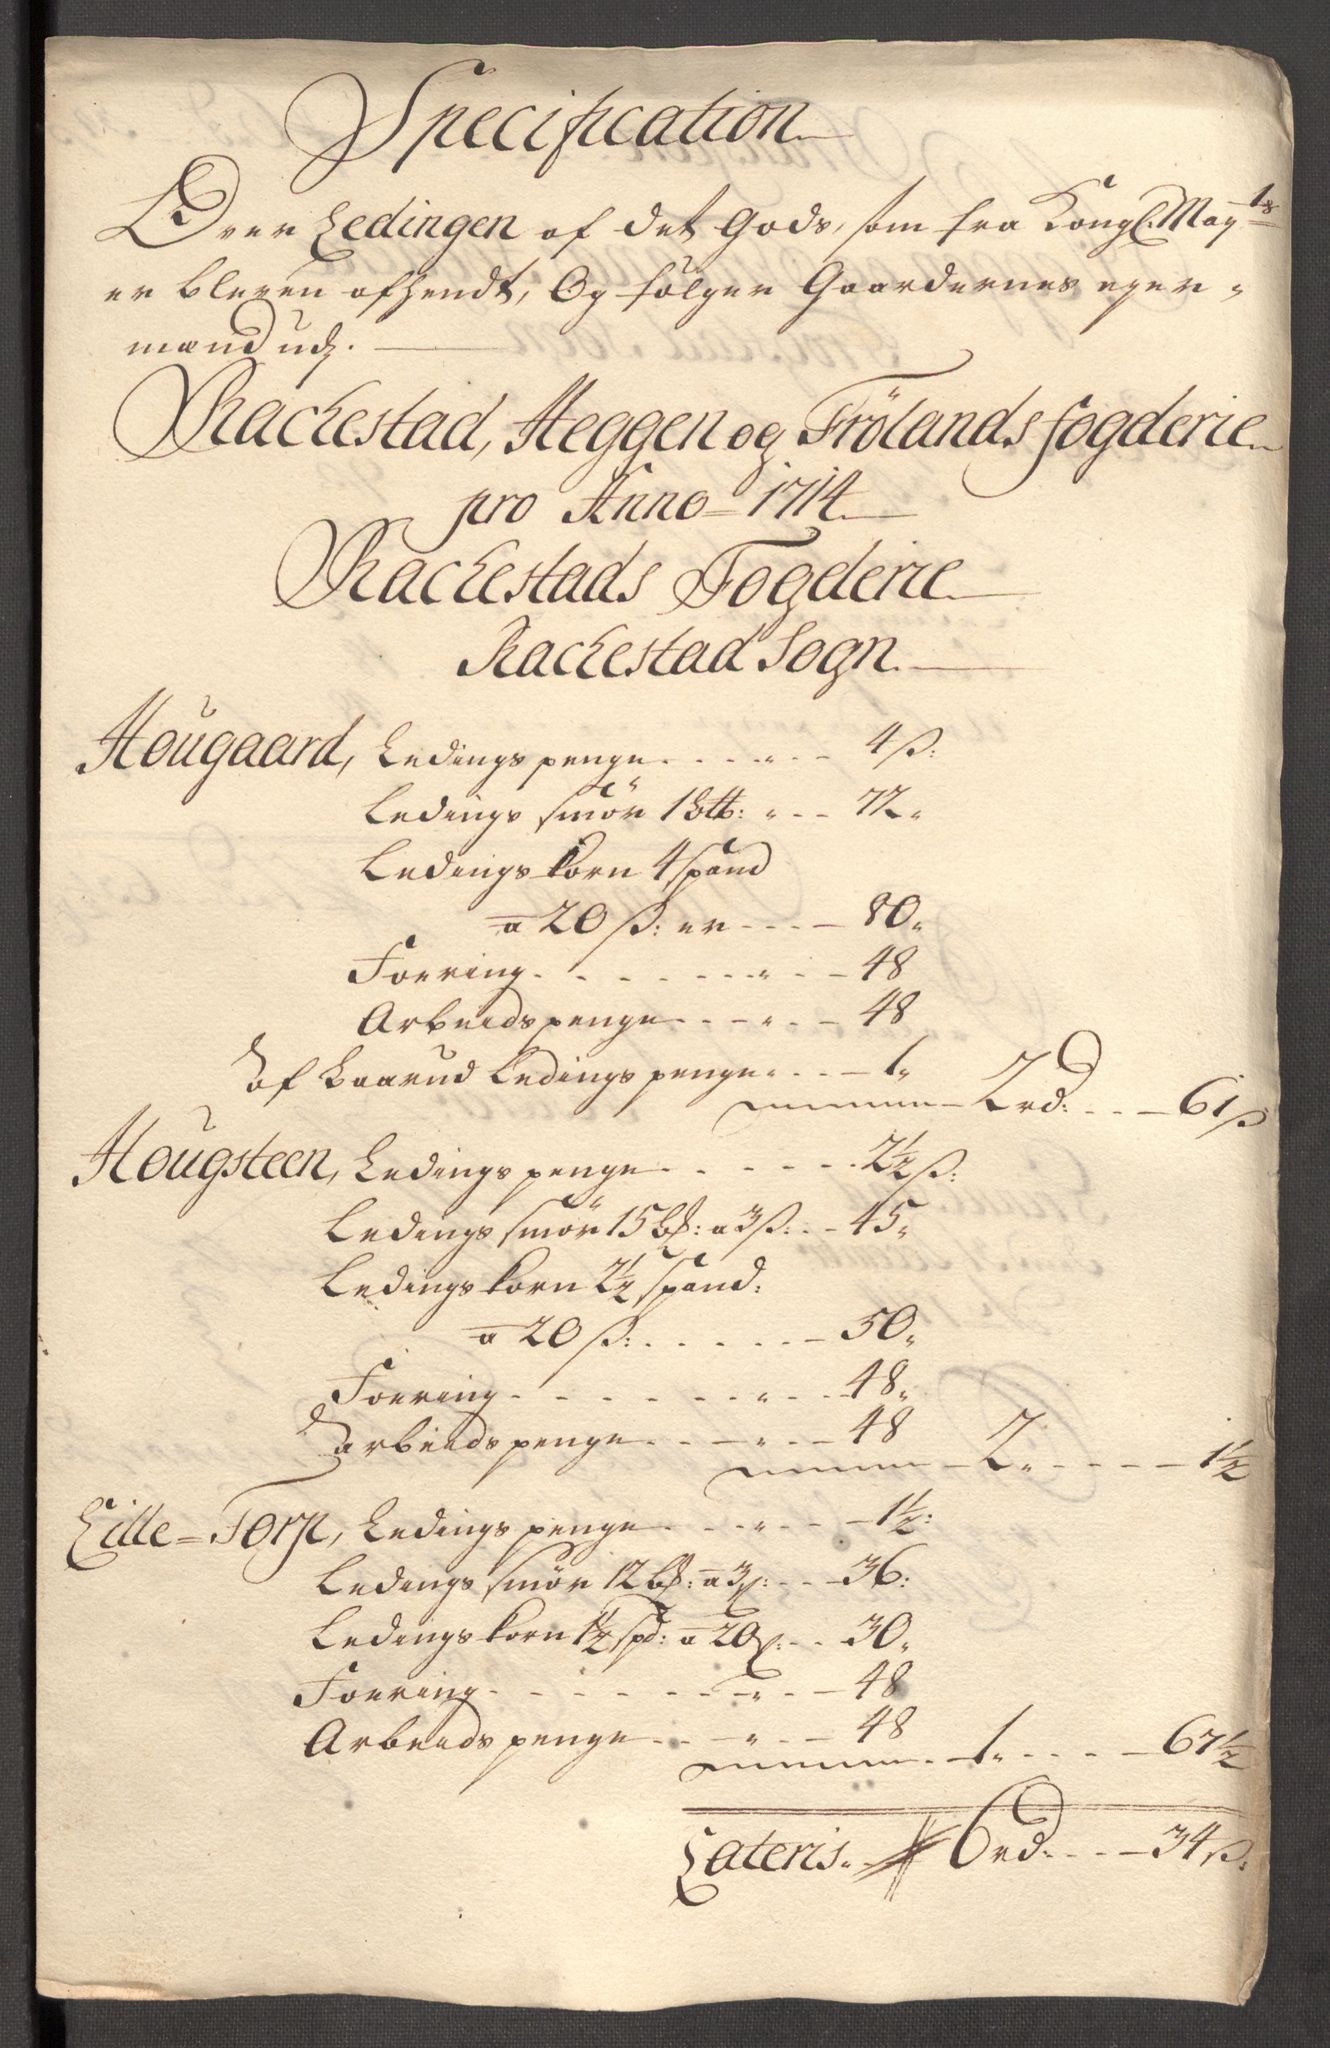 Specification
Over Ledingen af det Gods, som fra Kongl. May.ts
er bleven afhendt, Og følger Gaardernes eyer-
mænd udj.
Rackestad, Heggen og Frölands fogderie
pro Anno 1714
Rackestads Fogderie
Rackestad Sogn
Hougaard, Ledings penge - - - 4 ß:
Ledings smör 1 btt: - - 72 „
Ledings korn 4 spand
a 20 ß: er - - - 80 „
Foering - - - 48
Arbeids penge - - - 48
af Ledings penge - - - 1 „
2 rd: - - 61 ß
Hougsteen, Ledings penge - - - 2½ ß:
Ledings smör 15 bs: a 3 ß: - - 45 „
Ledings korn 2½ spand:
a 20 ß: - - - 50 „
Foering - - - 48 „
arbeids penge - - - 48
2 „ - - - 1½
Lille-Torp, Ledings penge - - - 1½:
Ledings smör 12 bs: a 3 ß: - - 36:
Ledings korn 1½ spd: a 20 ß: - - 30 „
Foering - - - 48
Arbeids penge - - - 48
1 „ - - - 67½
Lateris - 6 rd - - - 34 ß: